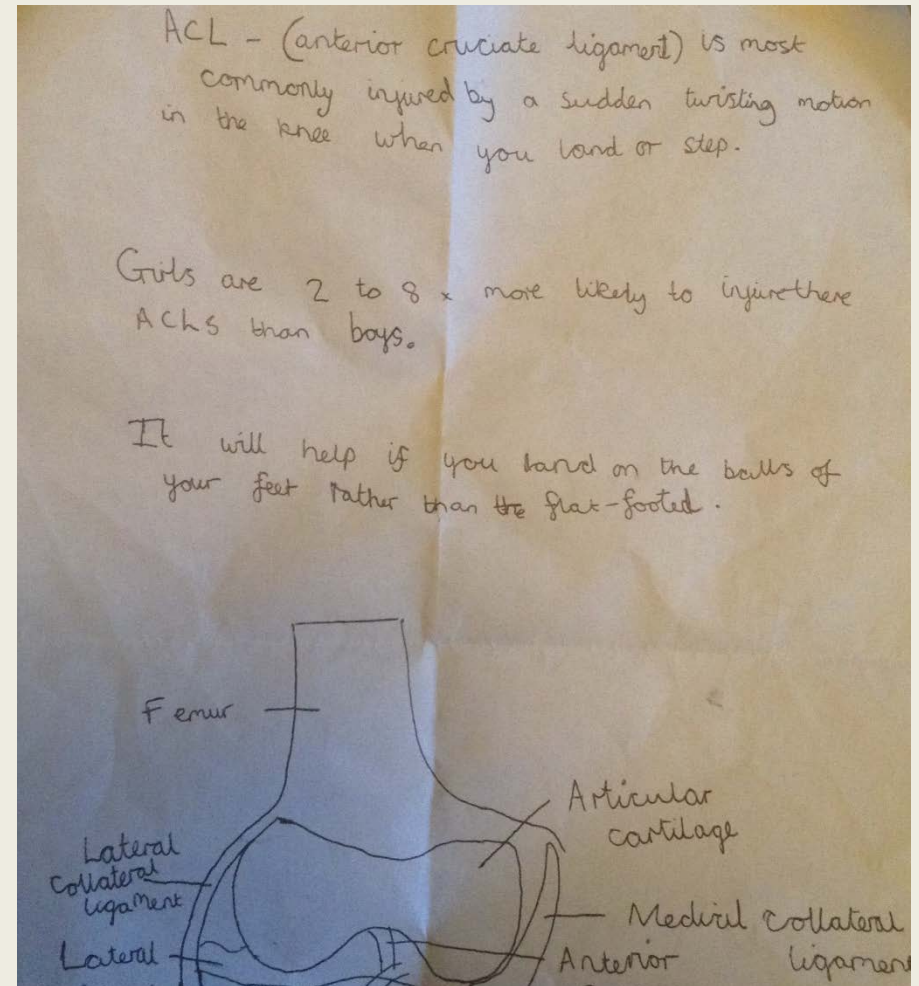 ACL - (anterior cruciate ligament) is most
commonly injured by a sudden twisting motion
in the knee when you land or step.
Girls are 2 to 8 x more likely to injure there
ACLs than boys.
It will help if you land on the balls of
your feet rather than the flat-footed.
Femur
Articular
cartilage
Lateral
Collateral
ligament
Medical Collateral
ligament
Lateral
Anterior